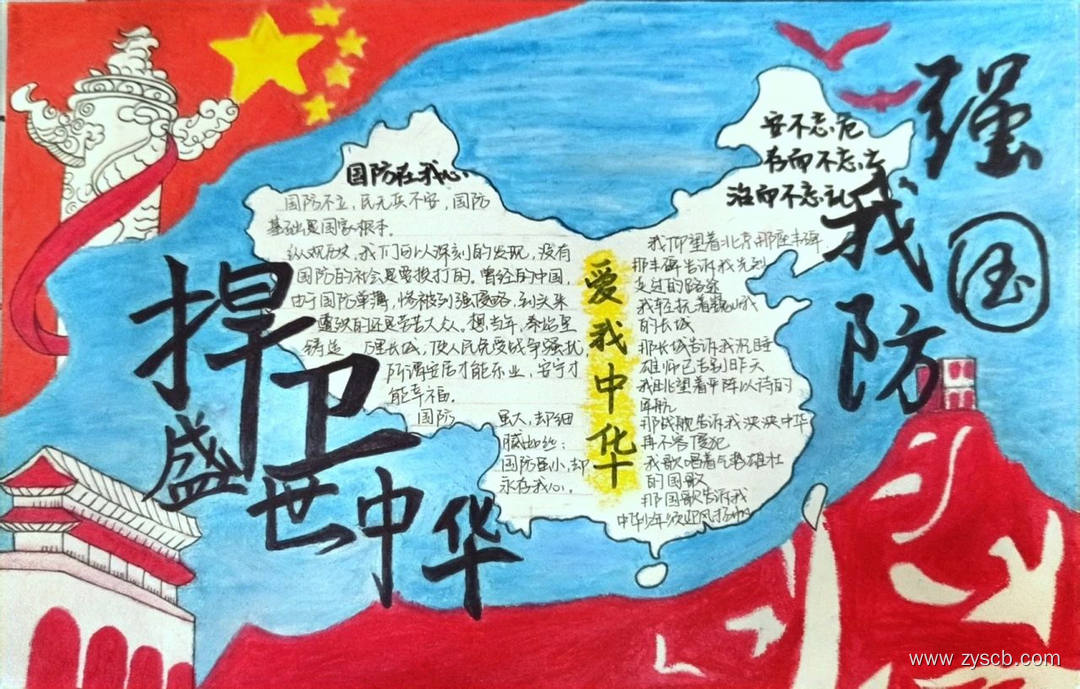 强我国防
安不忘危
存而不忘亡
治而不忘乱
国防在我心
国防不立，民无灰不安，国防
基础是国家根本。
纵观历史，我们可以深刻的发现，没有
国防的社会是要挨打的。曾经的中国，
由于国防单薄，惨被列强侵略，到头来
遭殃的还是劳苦大众。想当年，秦始皇
铸造 万里长城，使人民免受战争骚扰，
所谓安居才能乐业，安宁才
能幸福。
国防 虽大，却细
腻如丝；
国防虽小，却
永存我心。
爱我中华
我仰望着北京那座丰碑
那丰碑告诉我先烈
走过的路途
我轻抚着巍峨
的长城
那长城告诉我沉睡
雄师已告别昨天
我眺望着严阵以待的
军航
那战舰告诉我泱泱中华
再不容侵犯
我歌唱着气势雄壮
的国歌
那国歌告诉我
中华少年须迎风扬帆
捍卫
盛世中华
www.zyscb.com